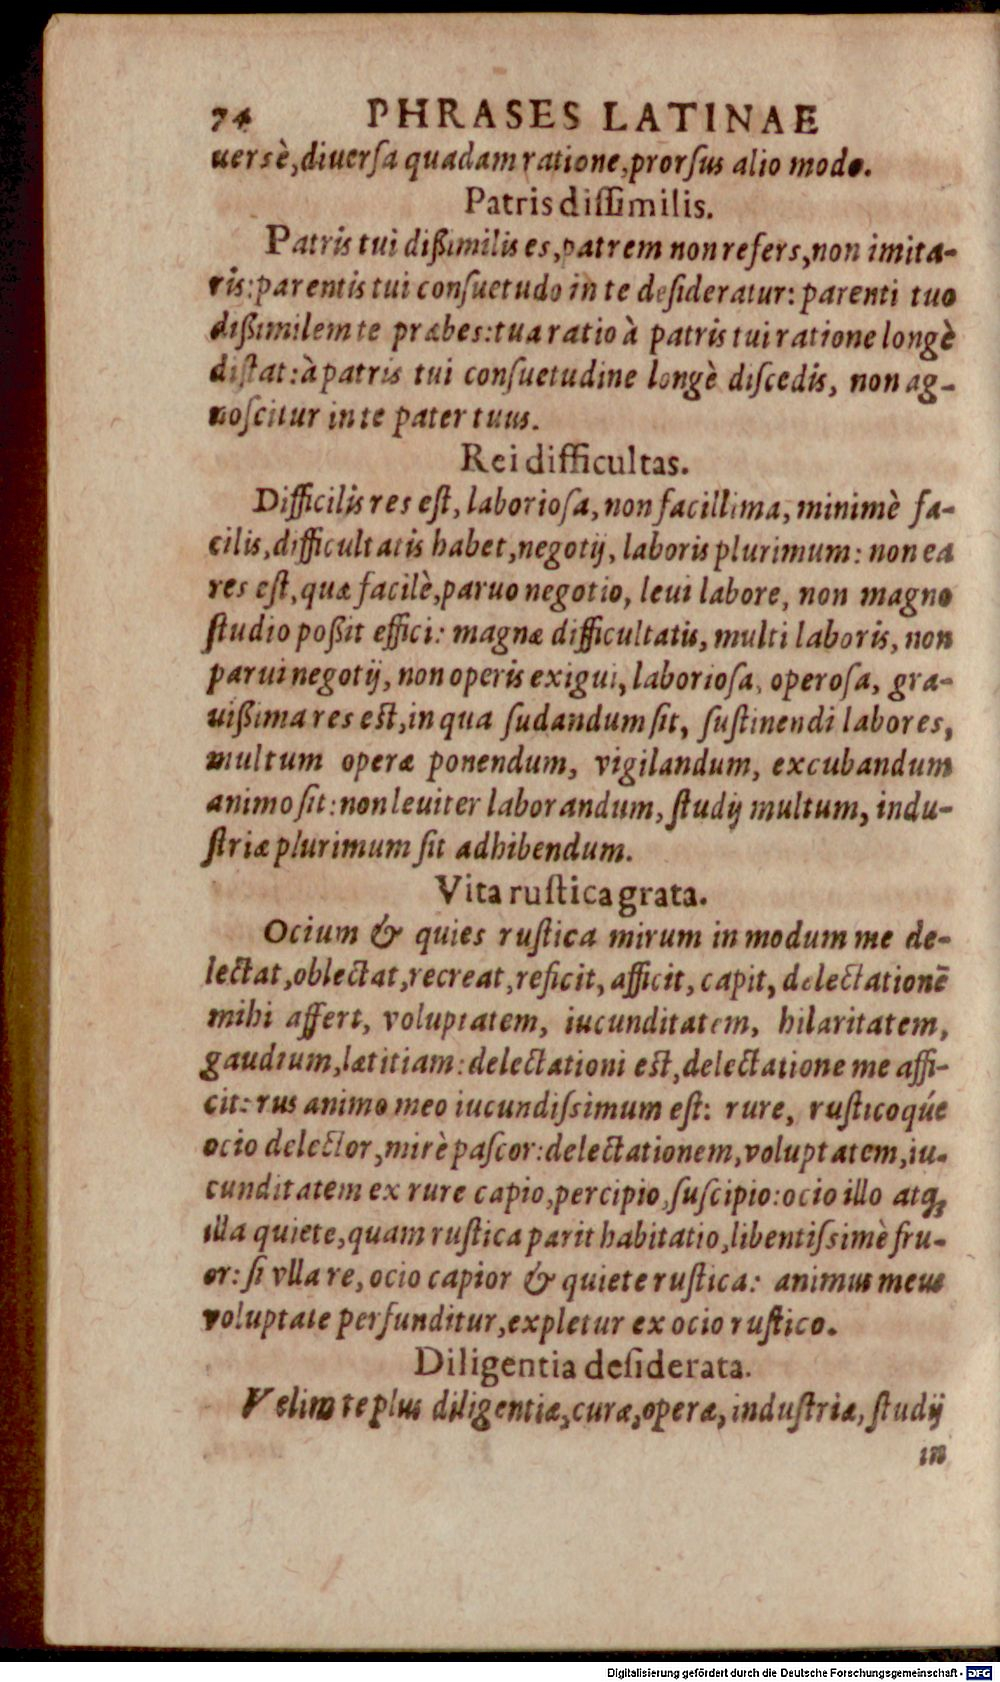 74 PHRASES LATINAE
uersè, diuersa quadam ratione, prorsus alio modo.
Patris dissimilis.
Patris tui dißimilis es, patrem non refers, non imita-
ris: parentis tui consuetudo in te desideratur: parenti tuo
dißimilem te præbes: tua ratio à patris tui ratione longè
distat: à patris tui consuetudine longè discedis, non ag-
noscitur in te pater tuus.
Rei difficultas.
Difficilis res est, laboriosa, non facillima, minimè fa-
cilis, difficultatis habet, negotij, laboris plurimum: non ea
res est, quæ facilè, paruo negotio, leui labore, non magno
studio poßit effici: magnæ difficultatis, multi laboris, non
parui negotij, non operis exigui, laboriosa, operosa, gra-
uißima res est, in qua sudandum sit, sustinendi labores,
multum operæ ponendum, vigilandum, excubandum
animo sit: non leuiter laborandum, studij multum, indu-
striæ plurimum sit adhibendum.
Vita rustica grata.
Ocium & quies rustica mirum in modum me de-
lectat, oblectat, recreat, reficit, afficit, capit, delectationē
mihi affert, voluptatem, iucunditatem, hilaritatem,
gaudium, lætitiam: delectationi est, delectatione me affi-
cit: rus animo meo iucundissimum est: rure, rusticoqúe
ocio delector, mirè pascor: delectationem, voluptatem, iu-
cunditatem ex rure capio, percipio, suscipio: ocio illo atq;
illa quiete, quam rustica parit habitatio, libentissimè fru-
or: si vlla re, ocio capior & quiete rustica: animus meus
voluptate perfunditur, expletur ex ocio rustico.
Diligentia desiderata.
Velim te plus diligentiæ, curæ, operæ, industriæ, studij
in
Digitalisierung gefördert durch die Deutsche Forschungsgemeinschaft - DFG